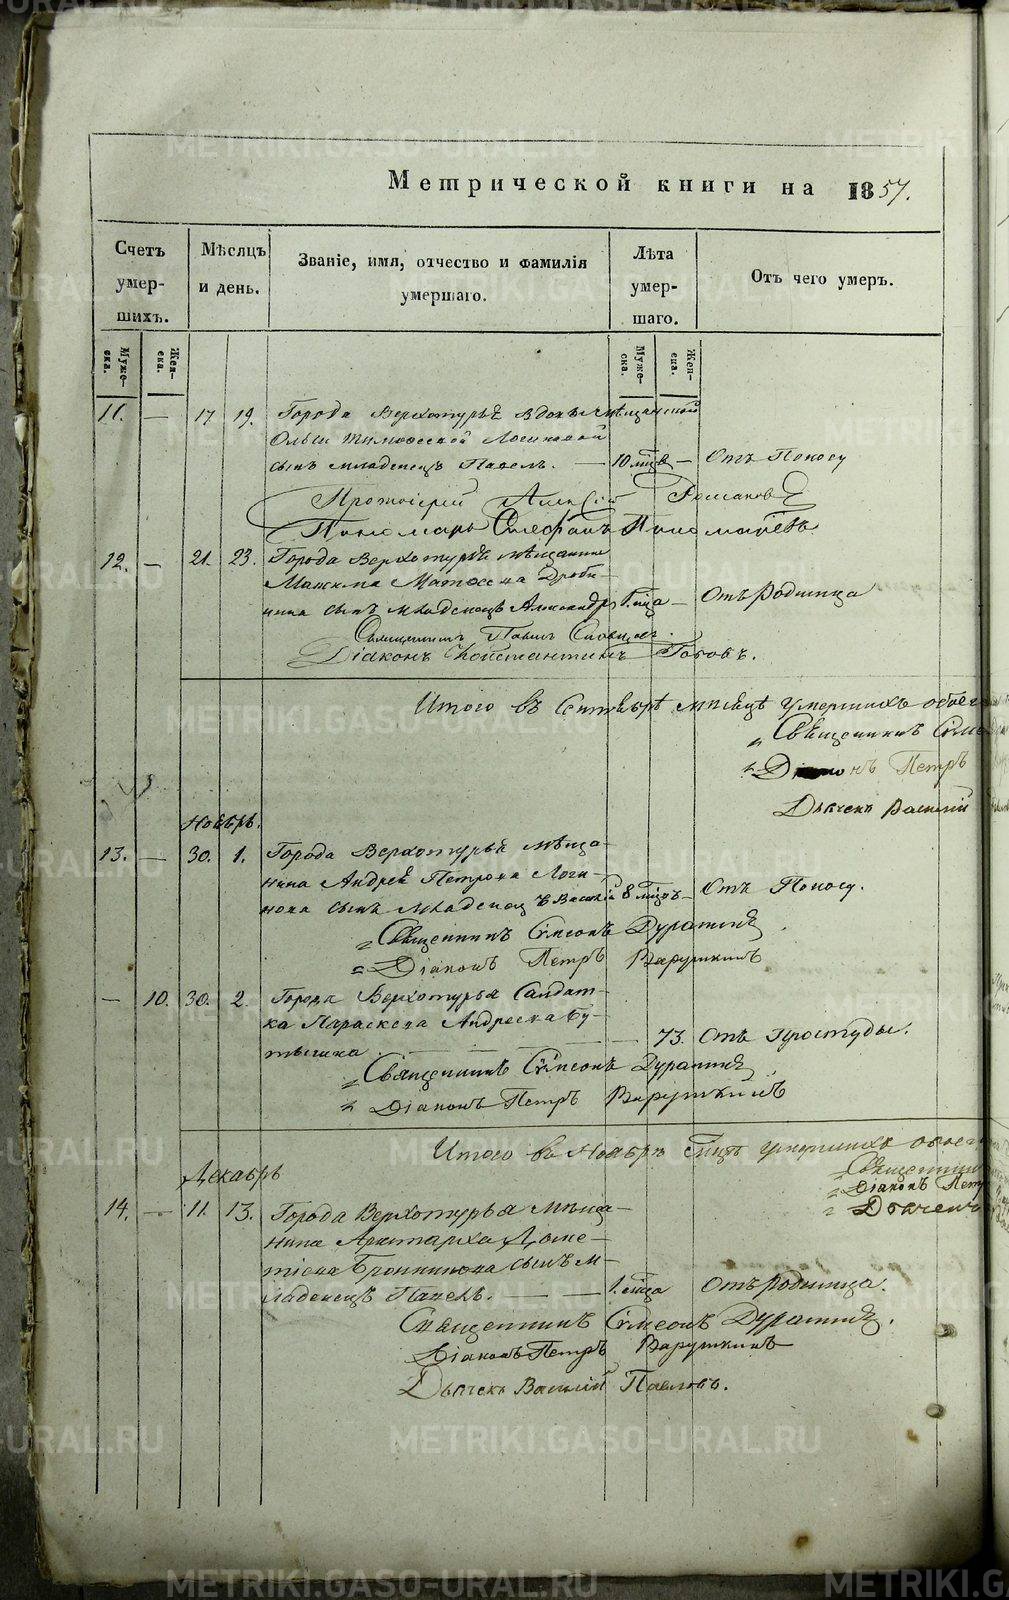 Метрической книги на 1857.
Счетъ умер-шихъ.
Мѣсяцъ и день.
Званіе, имя, отчество и фамилія умершаго.
Лѣта умер-шаго.
Отъ чего умеръ.
Муже-ска.
Жен-ска.
Муже-ска.
Жен-ска.
11. — 17 19. Города Верхотурья вдовы мѣщанской
Ольги Тимофеевой
сынъ младенецъ Павелъ. — 10 мцѣв — Отъ Поносу
Протоіерей Алексій
Пономарь Стефанъ Пономаревъ
12. — 21. 23. Города Верхотурья мѣщанина
Максима Матвеева Дроби-
нина сынъ младенецъ Александръ 1. мца — Отъ Родимца
Священникъ Павелъ
Діаконъ Константинъ Топовъ.
Итого въ Сентябрѣ мѣсяцѣ умершихъ обоего
Священникъ Симе
Діаконъ Петръ
Дьячекъ Василій
Ноябрь.
13. — 30. 1. Города Верхотурья мѣща-
нина Андрея Петрова Логи-
нова сынъ младенецъ Василій 8 мцѣ — Отъ Поносу.
Священникъ Симеонъ Дурагинъ
Діаконъ Петръ Варушкинъ
— 10. 30. 2. Города Верхотурья Солдат-
ка Параскева Андреева Бу-
тышка — 73. Отъ простуды.
Священникъ Симеонъ Дурагинъ
Діаконъ Петръ Варушкинъ
Итого въ Ноябрѣ мцѣ умершихъ обоего
Священникъ
Діаконъ Петр
Дьячекъ
Декабрь
14. — 11. 13. Города Верхотурья мѣща-
нина Аристарха Доме-
тіева Бронникова сынъ м-
ладенецъ Павелъ. — 1. мца Отъ Родимца.
Священникъ Симеонъ Дурагинъ.
Діаконъ Петръ Варушкинъ
Дьячекъ Василій Павловъ.
METRIKI.GASO-URAL.RU